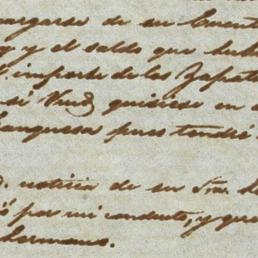 cargarse de su Cuenta
y el saldo que
importe de los Zapat
si Vmd quisiese en
franqueza pues tendré
noticia de su Sra.
por mi conducto, y que
hermano.